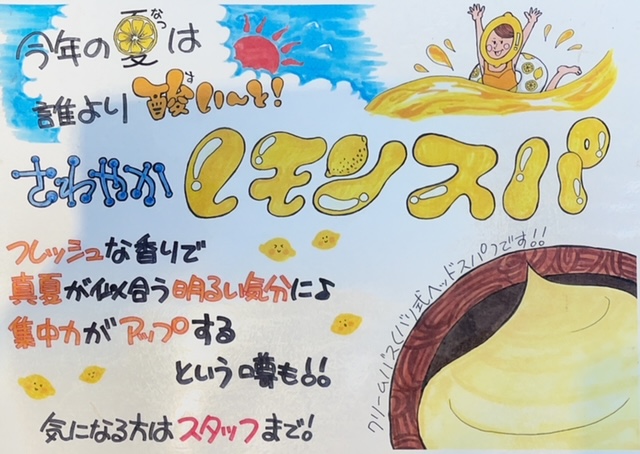 今年の夏は
なつ
誰より酸い〜と!
す
さわやか レモンスパ
フレッシュな香りで
真夏が似合う明るい気分に♪
集中力がアップする
という噂も!!
気になる方はスタッフまで!
クリームバス(バリ式ヘッドスパ)です!!